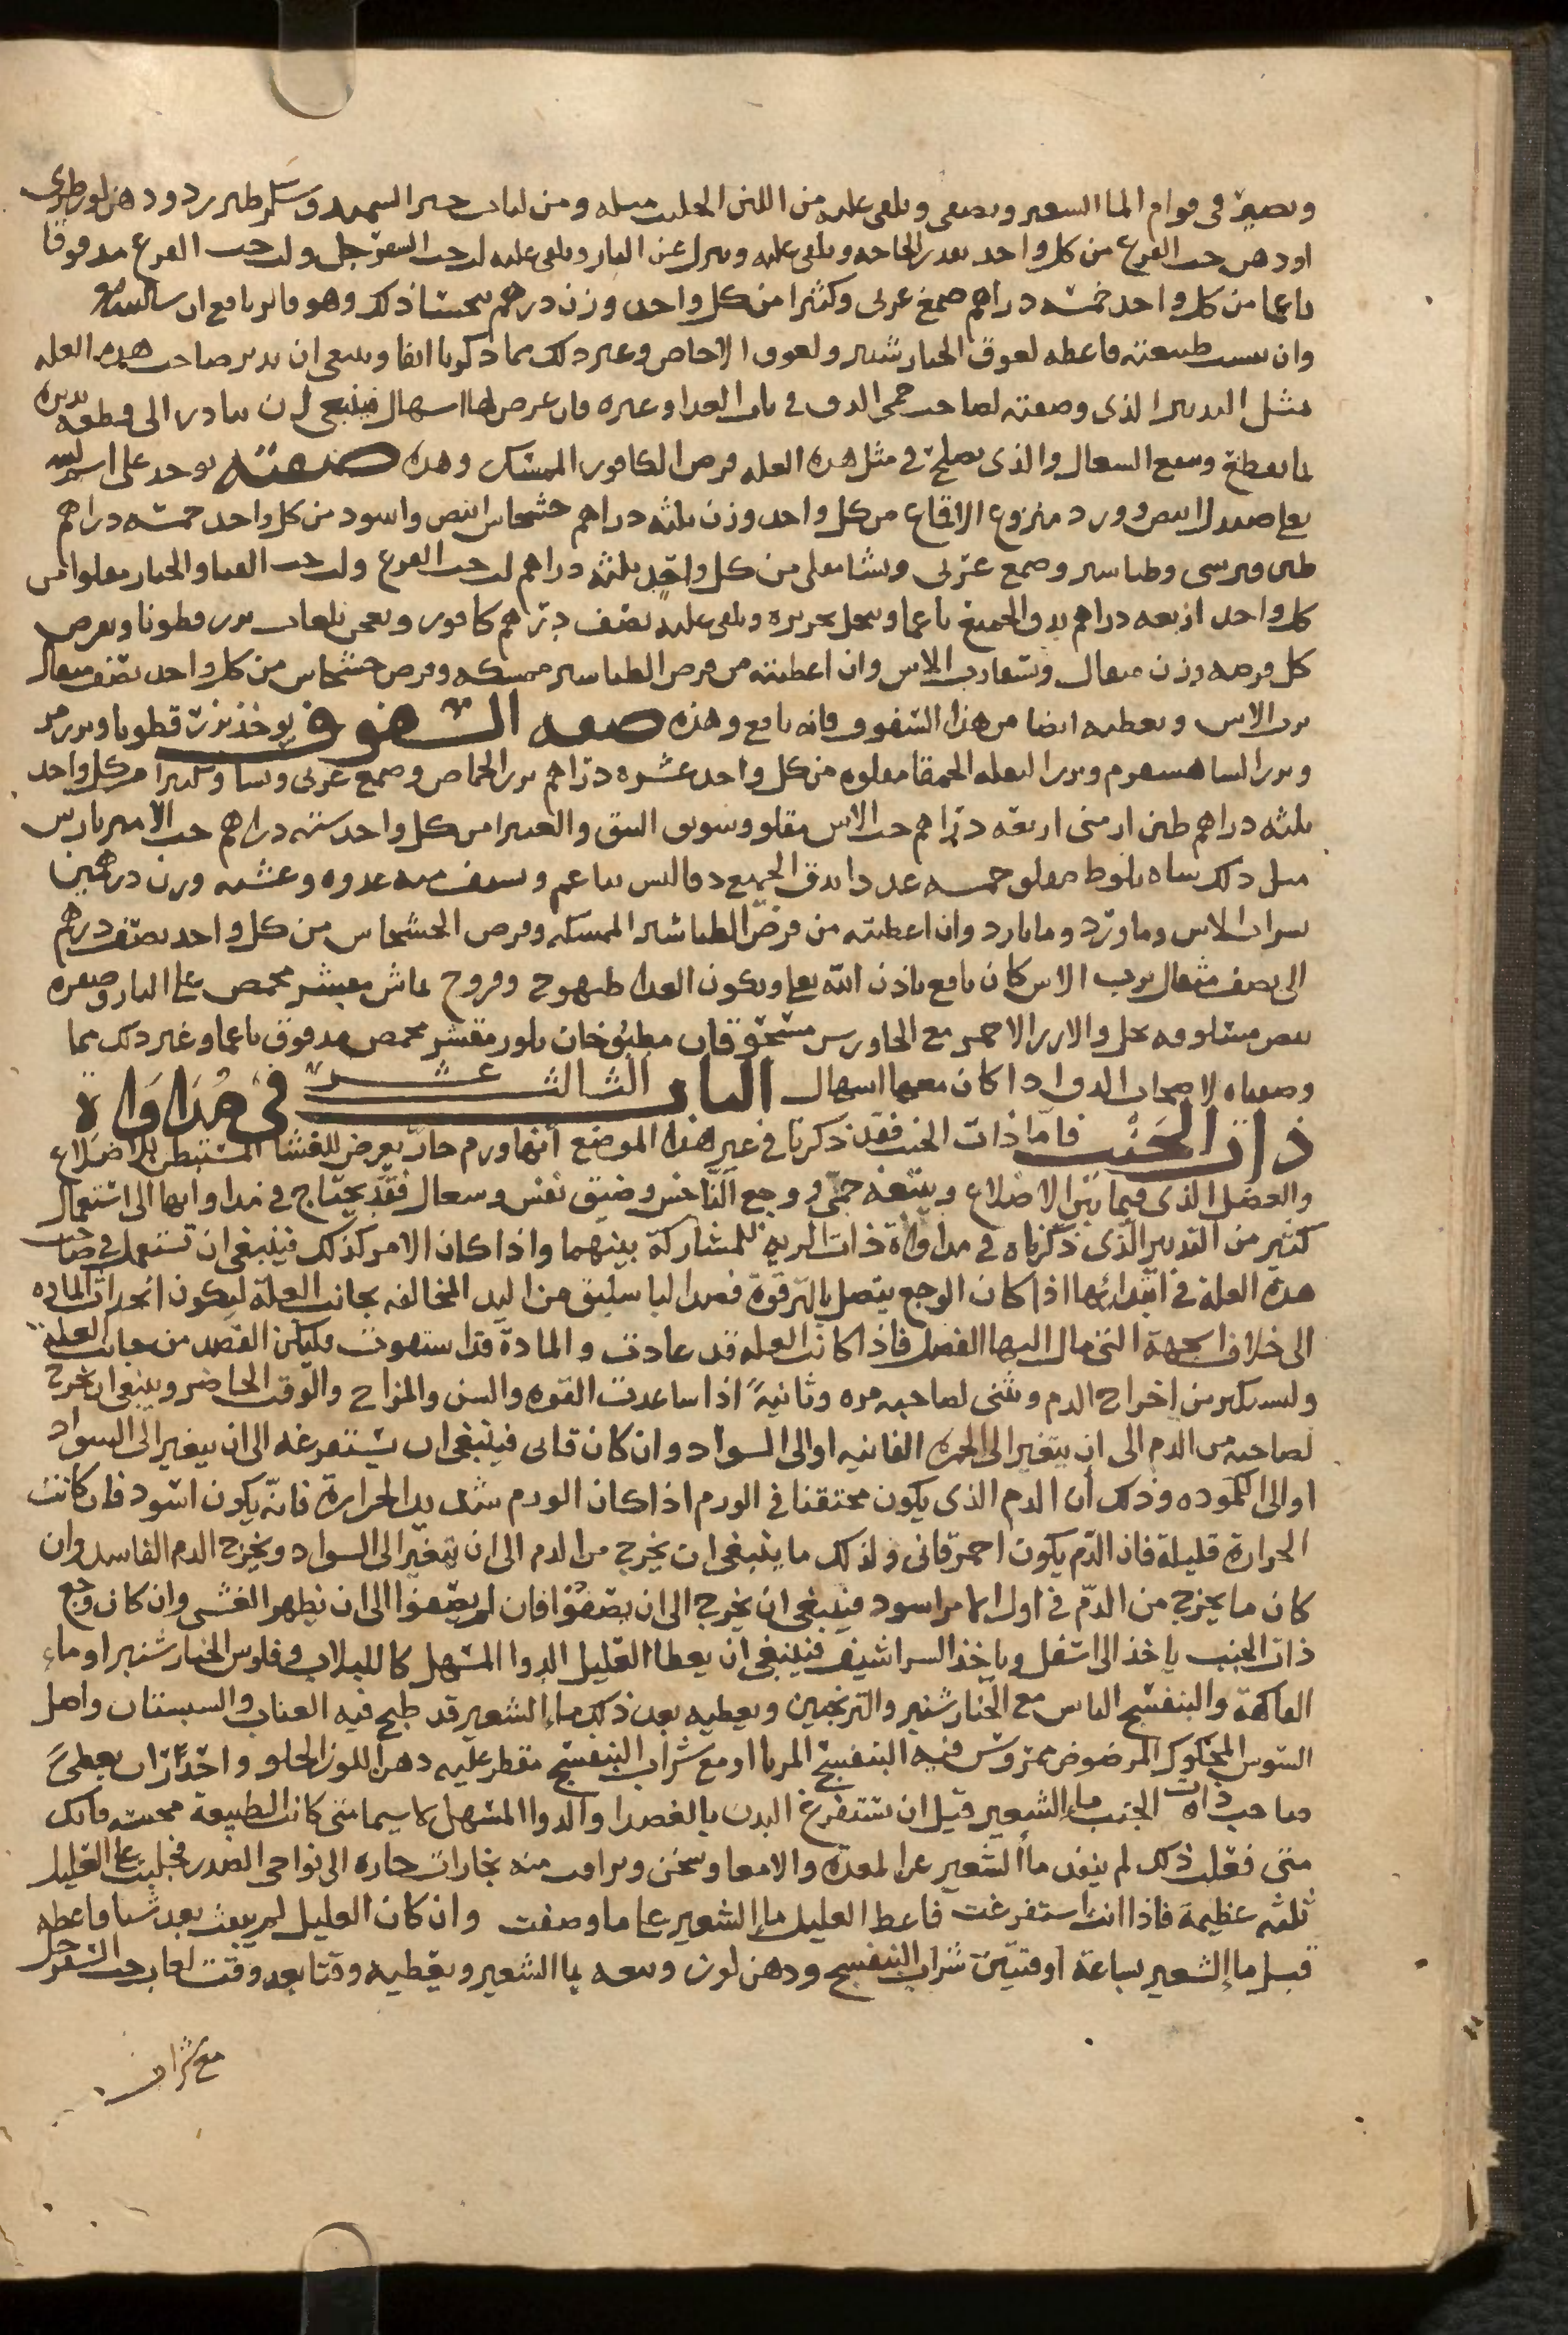 ويصير في قوام الما الشعير ويصفى ويلقى عليه من اللبن الحليب مثله ومن لباب خبز السميد وسكر طبرزد ودهن لوز طري
او دهن حب القرع من كل واحد بقدر الحاجه ويلقى عليه وينزل عن النار ويلقى عليه لب حب السفرجل ولب حب القرع مدقوقا
ناعما من كل واحد خمسه دراهم صمغ عربي وكثيرا من كل واحد وزن درهم بحسا ذلك وهو فاتر نافع ان شا الله
وان يبست طبيعته فاعطه لعوق الخيار شنبر ولعوق الاجاص وغير ذلك مما ذكرنا انفا وينبغي ان يدبر صاحب هذه العله
مثل التدبير الذي وصفته لصاحب حمى الدق في باب الغدا وغيره فان عرض لها اسهال فينبغي ان تبادر الى قطعه بتدبيره
بما يقطع ويمنع السعال والذي يصلح في مثل هذه العله قرص الكافور الممسك وهذه صفته يوخذ على اسم الله
تعا صندل ابيض وورد منزوع الاقماع من كل واحد وزن ثلثه دراهم خشخاش ابيض واسود من كل واحد خمسه دراهم
طين قبرسي وطباشير وصمغ عربي ونشا مقلى من كل واحد ثلثه دراهم لب حب القرع ولب حب القثا والخيار مقلوا من
كل واحد اربعه دراهم يدق الجميع ناعما وينخل بحريره ويلقى عليه نصف درهم كافور ويعجن بلعاب بزر قطونا ويقرص
كل قرصه وزن مثقال وتسقا برب الاس وان اعطيته من قرص الطباشير ممسكه وقرص خشخاش من كل واحد نصف مثقال
برب الاس ويعطيه ايضا من هذا السفوف فانه نافع وهذه صفه السفوف يوخذ بزر قطونا وبزر مر
وبزر الشاهسفرم وبزر البقله الحمقا مقلوه من كل واحد عشره دراهم بزر الحماض وصمغ عربي ونشا وكثيرا من كل واحد
ثلثه دراهم طين ارمني اربعه دراهم حب الاس مقلو وسويق النبق والغبيرا من كل واحد سته دراهم حب الامبرباريس
مثل ذلك شاه بلوط مقلو خمسه عدد ا يدق الجميع دقا ليس بناعم ويسف منه غدوه وعشيه وزن درهمين
بشراب الاس وماورد وما بارد وان اعطيته من قرص الطباشير الممسكه وقرص الخشخاش من كل واحد نصف درهم
الى نصف مثقال برب الاس كان نافع باذن الله تعا ويكون الغدا طيهوج وفروج بماش مقشر محمص على النار وصفره
بيض مسلوقه بخل والارز الاحمر مع الجاورس مسحوقان مطبوخان بلوز مقشر محمص مدقوق ناعما وغير ذلك مما
وصفناه لاصحاب الدق اذا كان معهما اسهال الباب الثالث عشر في مداواة
ذات الجنب فاما ذات الجنب فقد ذكرنا في غير هذا الموضع انها ورم حار يعرض للغشا المستبطن للاضلاع
والعضل الذي فيما بين الاضلاع ويتبعه حمى ووجع الناخس وضيق نفس وسعال فقد يحتاج في مداواتها الى استعمال
كثير من التدبير الذي ذكرناه في مداواة ذات الريه للمشاركة بينهما واذا كان الامر كذلك فينبغي ان تستعمل في صاحب
هذه العلة في ابتدائها اذا كان الوجع يتصل بالترقوة فصد الباسليق من اليد المخالفه بجانب العلة ليكون انجذاب الماده
الى خلاف الجهة التي مال اليها الفضل فاذا كانت العله قد عادت والمادة قد استهوت فليكن الفصد من جانب العله
وليستكثر من اخراج الدم وثنى لصاحبه مره وثانيةً اذا ساعدت القوه والسن والمزاج والوقت الحاضر وينبغي ان يخرج
لصاحبه من الدم الى ان يتغير الى الحمره القانيه او الى السواد وان كان قانى فينبغي ان يستفرغه الى ان يتغير الى السواد
او الى الكموده وذلك أن الدم الذي يكون محتقنا في الورم اذا كان الورم شديد الحرارة فانه يكون اسود فان كانت
الحرارة قليلة فان الدم يكون احمر قانى ولذلك ما ينبغي ان يخرج من الدم الى ان يتغير الى السواد ويخرج الدم الفاسد وان
كان ما يخرج من الدم في اول الامر اسود فينبغي ان يخرج الى ان يصفوا فان لم يصفوا الى ان يظهر الغشي وان كان وجع
ذات الجنب ياخذ الى اسفل وياخذ الشراشيف فينبغي ان يعطا العليل الدوا المسهل كاللبلاب وفلوس الخيار شنبر او ماء
الفاكهة والبنفسج اليابس مع الخيار شنبر والترنجبين ويعطيه بعد ذلك ماء الشعير قد طبخ فيه العناب والسبستان واصل
السوس المحكوك المرضوض ممروس فيه البنفسج المربا او مع شراب البنفسج مقطر عليه دهن اللوز الحلو واحذر ان يعطىَ
صاحب ذات الجنب ماء الشعير قبل ان تستفرغ البدن بالفصد او الدوا المسهل لاسيما متى كانت الطبيعة محتبسه فانك
متى فعلت ذلك لم ينفذ مأ الشعير عن المعدة والامعا وسخن وتراقت منه بخارات حاره الى نواحي الصدر فجلبت على العليل
ثلثه عظيمة فاذا انت استفرغت فاعط العليل ماء الشعير على ما وصفت وان كان العليل لم ينفث بعد شيا فاعطه
قبل ماء الشعير بساعة اوقتين شراب البنفسج ودهن لوز وتتبعه بما الشعير ويعطيه وقتا بعد وقت لعاب حب السفرجل
مع شراب